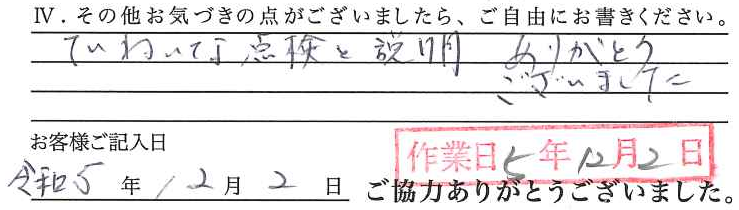 Ⅳ．その他お気づきの点がございましたら、ご自由にお書きください。
ていねいな点検と説明 ありがとう
ございました
お客様ご記入日
作業日5年12月2日
令和5年12月2日
ご協力ありがとうございました。